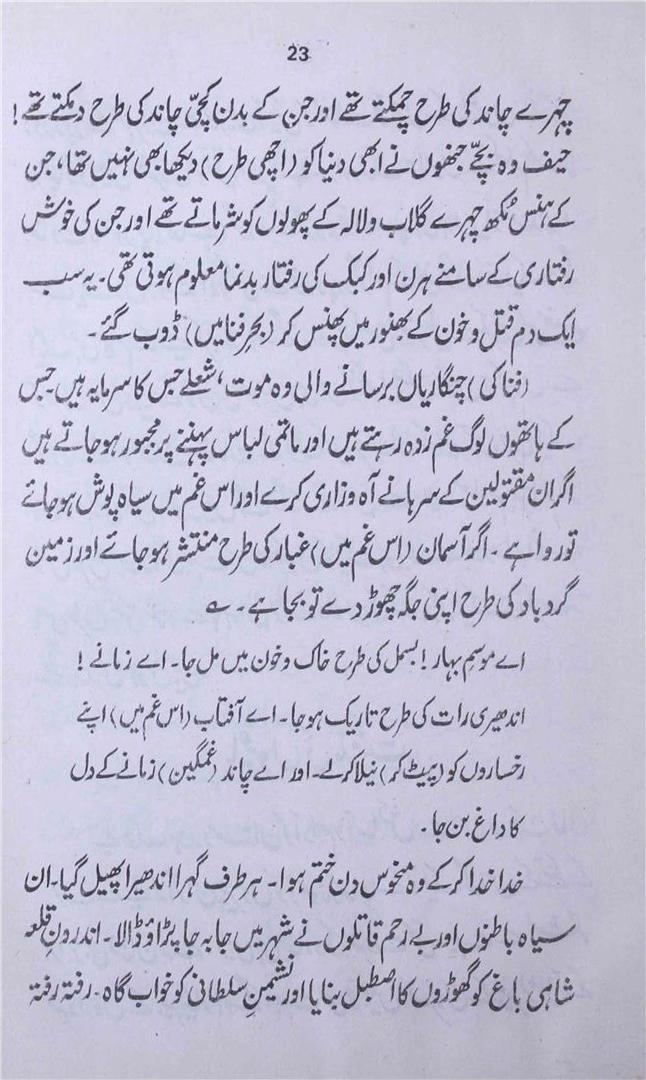 23
چہرے چاند کی طرح چمکتے تھے اور جن کے بدن کچّی چاند کی طرح دمکتے تھے!
حیف وہ بچّے جنھوں نے ابھی دنیا کو (اچھی طرح) دیکھا بھی نہیں تھا، جن
کے ہنس مُکھ چہرے گلاب ولالہ کے پھولوں کو شرماتے تھے اور جن کی خوش
رفتاری کے سامنے ہرن اور کبک کی رفتار بدنما معلوم ہوتی تھی۔ یہ سب
ایک دم قتل وخون کے بھنور میں پھنس کر (بحرِ فنا میں) ڈوب گئے۔
(فنا کی) چنگاریاں برسانے والی وہ موت، شعلے جس کا سرمایہ ہیں۔ جس
کے ہاتھوں لوگ غم زدہ رہتے ہیں اور ماتمی لباس پہننے پر مجبور ہوجاتے ہیں
اگر ان مقتولین کے سرہانے آہ وزاری کرے اور اس غم میں سیاہ پوش ہوجائے
تو روا ہے۔ اگر آسمان (اس غم میں) غبار کی طرح منتشر ہوجائے اور زمین
گردباد کی طرح اپنی جگہ چھوڑ دے تو بجا ہے۔ ؎
اے موسمِ بہار! بسمل کی طرح خاک وخون میں مل جا۔ اے زمانے!
اندھیری رات کی طرح تاریک ہوجا۔ اے آفتاب (اس غم میں) اپنے
رخساروں کو (پیٹ کر) نیلا کرلے۔ اور اے چاند (غمگین) زمانے کے دل
کا داغ بن جا۔
خدا خدا کرکے وہ منحوس دن ختم ہوا۔ ہر طرف گہرا اندھیرا پھیل گیا۔ ان
سیاہ باطنوں اور بے رحم قاتلوں نے شہر میں جا بہ جا پڑاؤ ڈالا۔ اندرونِ قلعہ
شاہی باغ کو گھوڑوں کا اصطبل بنایا اور نشیمنِ سلطانی کو خواب گاہ۔ رفتہ رفتہ